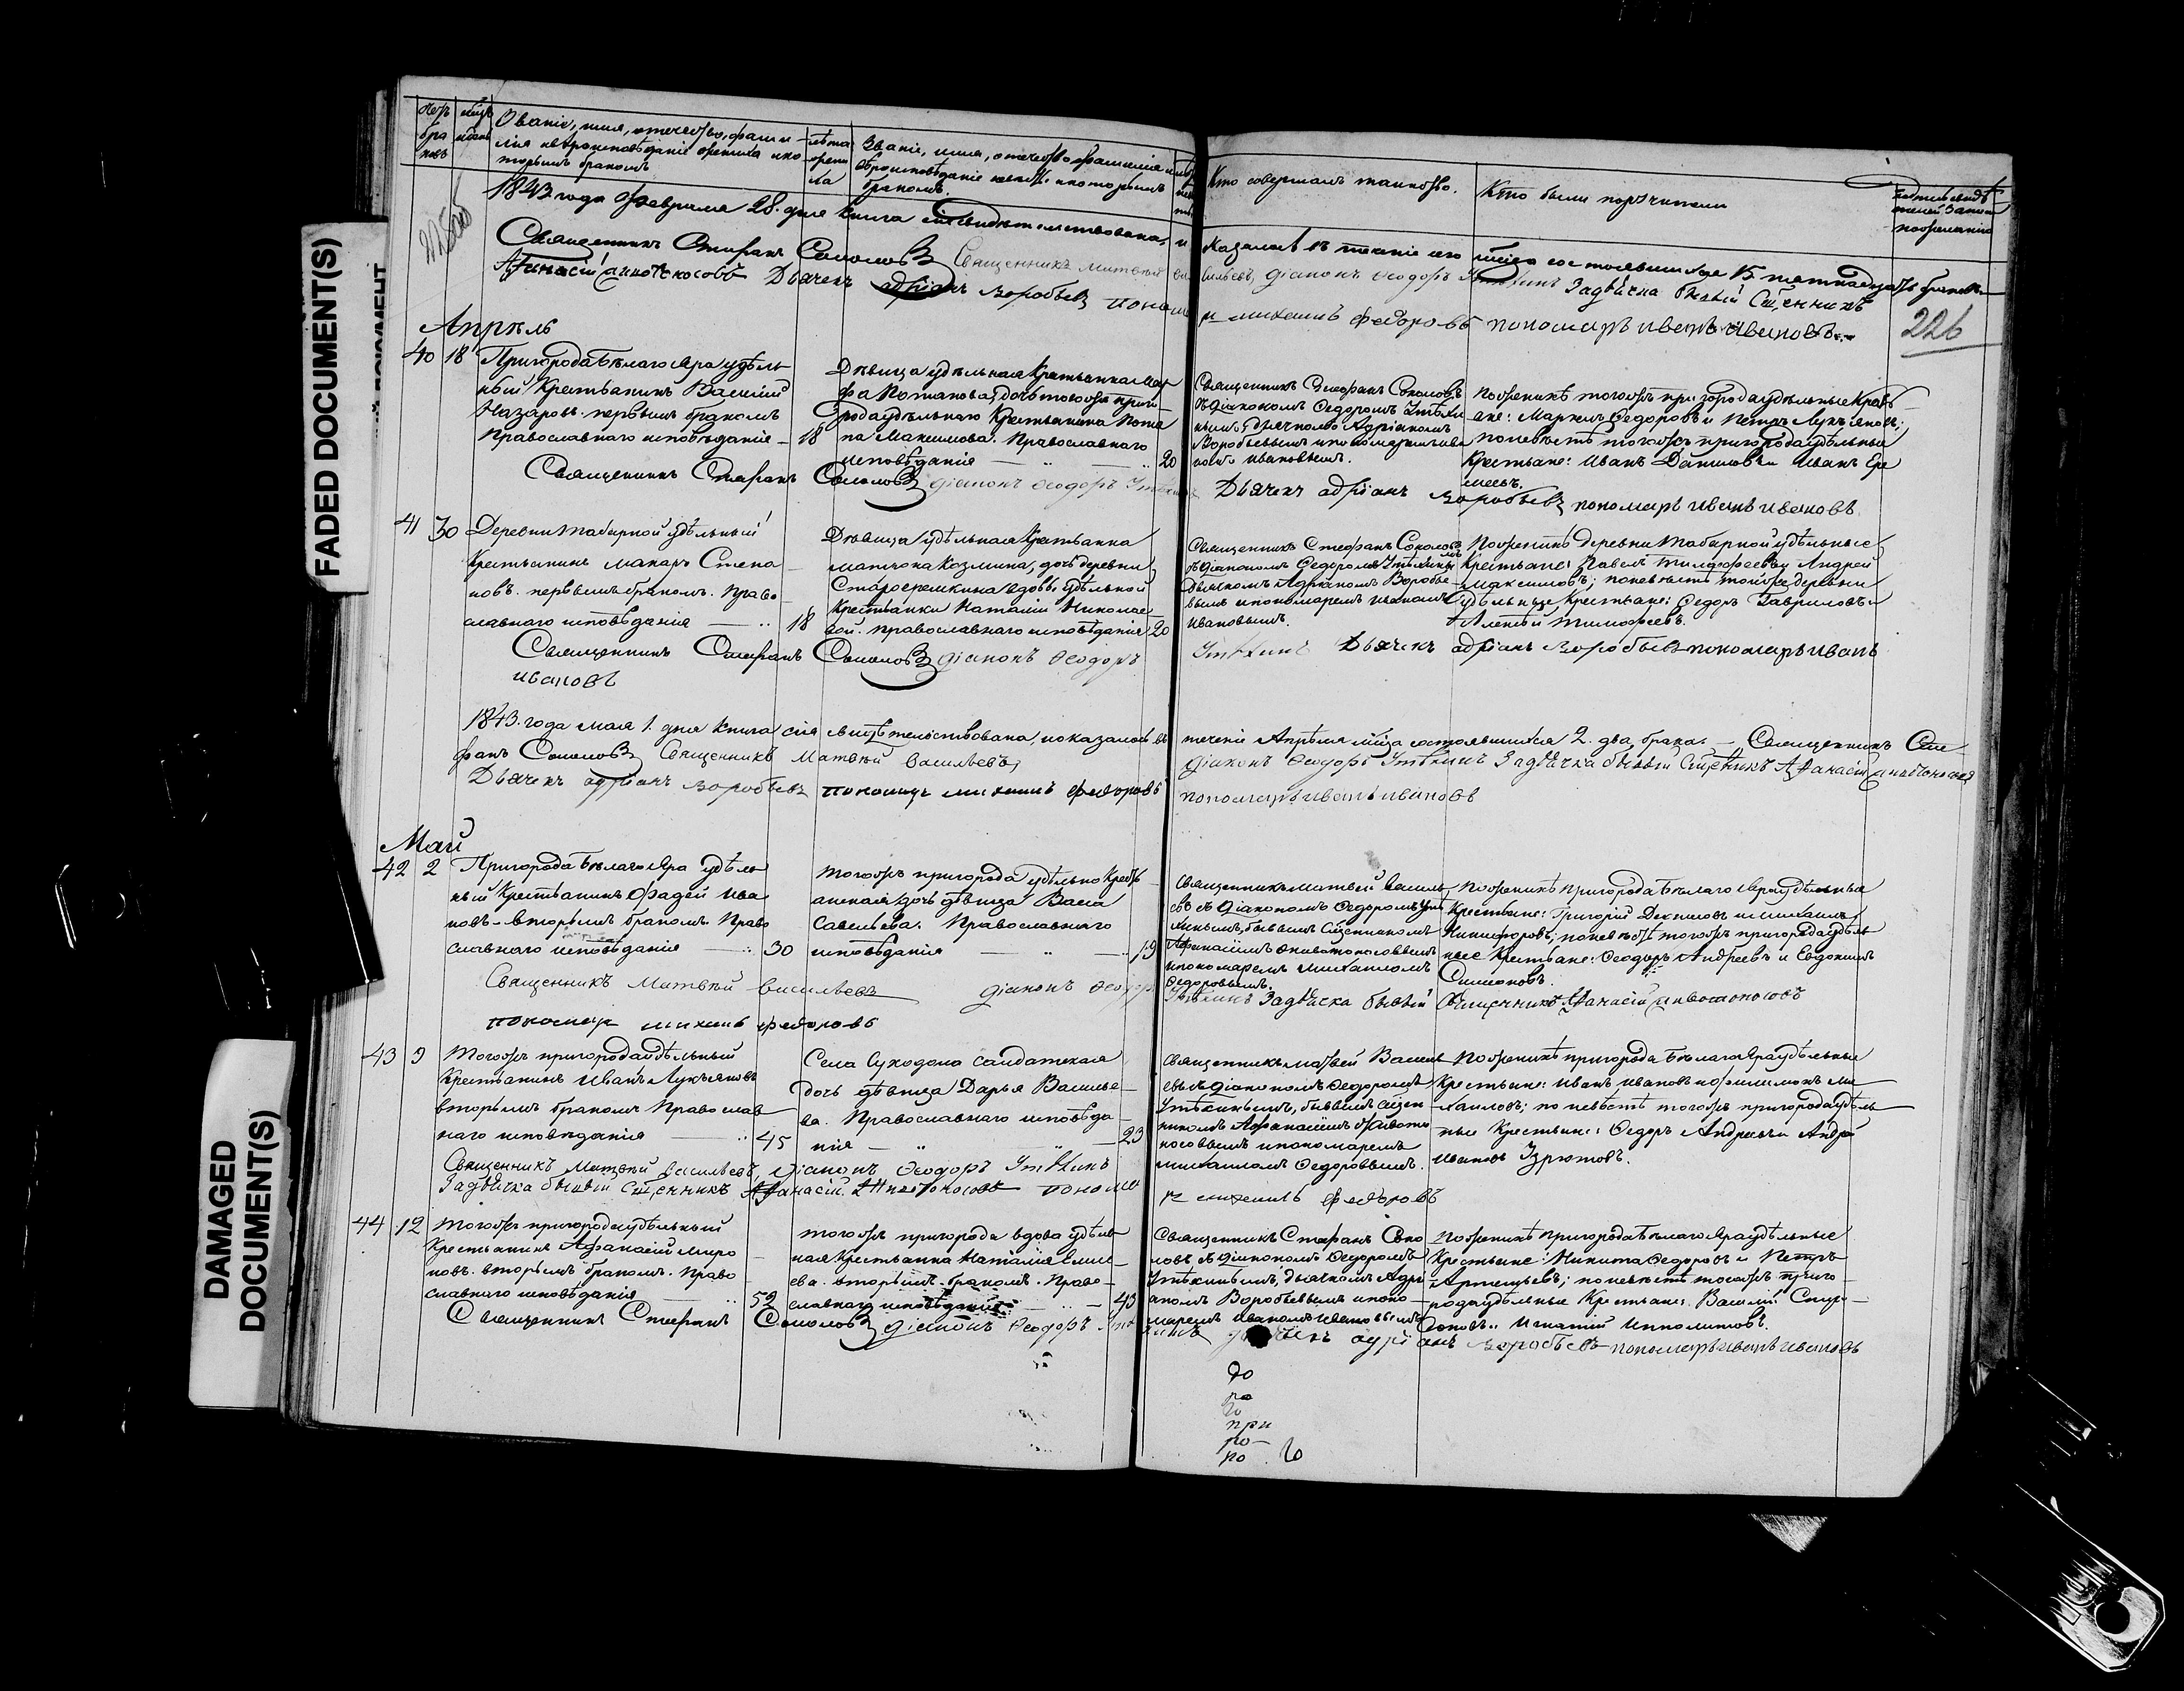 FADED DOCUMENT(S)
DAMAGED
DOCUMENT(S)
Званіе, имя, отечество, фами
лія и вѣроисповѣданіе жениха и ко
торымъ бракомъ
лѣта
жени
ха
Званіе, имя, отечество, фамилія и
вѣроисповѣданіе невѣсты и которымъ
бракомъ.
Кто совершалъ таинство.
Кто были поручители
1843 года февраля 28. дня книга сія свидѣтельствована, и
казалось въ теченіе его мѣсяца состоявшихся 15. пятнадцать браковъ.
Священникъ Стефанъ Соколовъ Священникъ Матвѣй Ва
сильевъ, діаконъ Ѳеодоръ Утѣхинъ Задьячка бывый Сщенникъ
Аѳанасій Дьячекъ адріанъ воробьевъ поном
р михаилъ федоровъ пономарь иванъ ивановъ
226
Апрѣль
40 18 Пригорода Бѣлаго Яра удѣль
ный Крестьянинъ Василій
Назаровъ. первымъ бракомъ
Православнаго исповѣданія 18
Дѣвица удѣльная Крестьянка Мар
фа Потапова, дочь тогожъ приго
рода удѣльнаго Крестьянина Пота
па Максимова. Православнаго
исповѣданія 20
Священникъ Стефанъ Соколовъ
съ діакономъ Ѳедоромъ Утѣхи
нымъ, дьячкомъ Адріаномъ
Воробьевымъ и пономаремъ Ива
номъ Ивановымъ.
По женихѣ тогожъ пригорода удѣльные Кресть
яне: Маркелъ Ѳедоровъ и Петръ Лукъяновъ;
по невѣстѣ тогожъ пригорода удѣльные
Крестьяне: Иванъ Даниловъ и Иванъ Ере
меевъ.
Священникъ Стефанъ Соколовъ діаконъ Ѳеодоръ Утѣхинъ Дьячекъ адріанъ воробьевъ пономарь иванъ ивановъ
41 30 Деревни Табарной удѣльный
Крестьянинъ Макаръ Степа
новъ. первымъ бракомъ. Право
славнаго исповѣданія 18
Дѣвица удѣльная Крестьянка
Матрона Козмина, дочь деревни
Старосрешкина вдовы удѣльной
Крестьянки Наталіи Николае
вой. православнаго исповѣданія 20
Священникъ Стефанъ Соколовъ
съ діакономъ Ѳедоромъ Утѣхинымъ
Дьячкомъ Адріаномъ Воробье
вымъ и пономаремъ Иваномъ
Ивановымъ.
По женихѣ деревни Табарной удѣльные
Крестьяне: Павелъ Тимофеевъ и Андрей
Максимовъ; по невѣстѣ той же деревни
удѣльные Крестьяне: Ѳедоръ Гавриловъ и
Алексѣй Тимофеевъ.
Священникъ Стефанъ Соколовъ діаконъ Ѳеодоръ Утѣхинъ Дьячекъ адріанъ воробьевъ пономарь иванъ
ивановъ
1843. года мая 1. дня книга сія свидѣтельствована, и оказалось въ теченіи Апрѣля мѣсяца состоявшихся 2. два, брака. Священникъ Сте
фанъ Соколовъ Священникъ Матвѣй Васильевъ, діаконъ Ѳеодоръ Утѣхинъ Задьячка бывый Сщенникъ Аѳанасій
Дьячекъ адріанъ воробьевъ пономарь михаилъ федоровъ пономарь иванъ ивановъ
Май
42 2 Пригорода Бѣлаго Яра удѣль
ный Крестьянинъ Фадей Ива
новъ. вторымъ бракомъ. Право
славнаго исповѣданія 30
тогожъ пригорода удѣльно Кресть
янская дочь дѣвица Васса
Савельева. Православнаго
исповѣданія 19
Священникъ Матвѣй Василь
евъ съ діакономъ Ѳедоромъ Утѣ
хинымъ, бывшимъ Сщенникомъ
Аѳанасіемъ Животоносовымъ
и пономаремъ Михаиломъ
Ѳедоровымъ.
По женихѣ пригорода Бѣлаго Яра удѣльные
Крестьяне: Григорій и Михаилъ
Никифоровъ; по невѣстѣ тогожъ пригорода удѣль
ные Крестьяне: Ѳеодоръ Андреевъ и Евдокимъ
Симоновъ.
Священникъ Матвѣй Васильевъ діаконъ Ѳеодоръ Утѣхинъ Задьячка бывый Священникъ Аѳанасій Животоносовъ
пономарь михаилъ федоровъ
43 9 Тогожъ пригорода удѣльный
Крестьянинъ Иванъ Лукъяновъ
вторымъ бракомъ Православ
наго исповѣданія 45
Села Суходола салдатская
дочь дѣвица Дарья Василье
ва. Православнаго исповѣда
нія 23
Священникъ Матвей Василь
евъ съ діакономъ Ѳедоромъ
Утѣхинымъ, бывшимъ Сщен
никомъ Аѳанасіемъ Живото
носовымъ и пономаремъ
Михаиломъ Ѳедоровымъ.
По женихѣ пригорода Бѣлаго Яра удѣльные
Крестьяне: Иванъ Ивановъ и Филимонъ Ми
хаиловъ; по невѣстѣ тогожъ пригорода удѣль
ные Крестьяне: Ѳедоръ Андреевъ и Андрей
Ивановъ Изрютовъ.
Священникъ Матвѣй Васильевъ, діаконъ Ѳеодоръ Утѣхинъ
Задьячка бывый Сщенникъ Аѳанасій Животоносовъ пономарь михаилъ федоровъ
44 12 Тогожъ пригорода удѣльный
Крестьянинъ Афанасій Миро
новъ. вторымъ бракомъ. Право
славнаго исповѣданія 52
тогожъ пригорода вдова удѣль
ная Крестьянка Наталія Елисе
ева. вторымъ бракомъ. Право
славнаго исповѣданія 43
Священникъ Стефанъ Соко
ловъ съ діакономъ Ѳедоромъ
Утѣхинымъ, дьячкомъ Адрі
аномъ Воробьевымъ и поно
маремъ Иваномъ Ивановымъ
По женихѣ пригорода Бѣлаго Яра удѣльные
Крестьяне: Никита Ѳедоровъ и Петръ
Артемьевъ; по невѣстѣ тогожъ приго
рода удѣльные Крестьяне: Василій Спири
доновъ и Игнатій Ипполитовъ.
Священникъ Стефанъ Соколовъ діаконъ Ѳеодоръ Утѣхинъ дьячекъ адріанъ воробьевъ пономарь иванъ ивановъ
до
ра
го
при
ро
ро